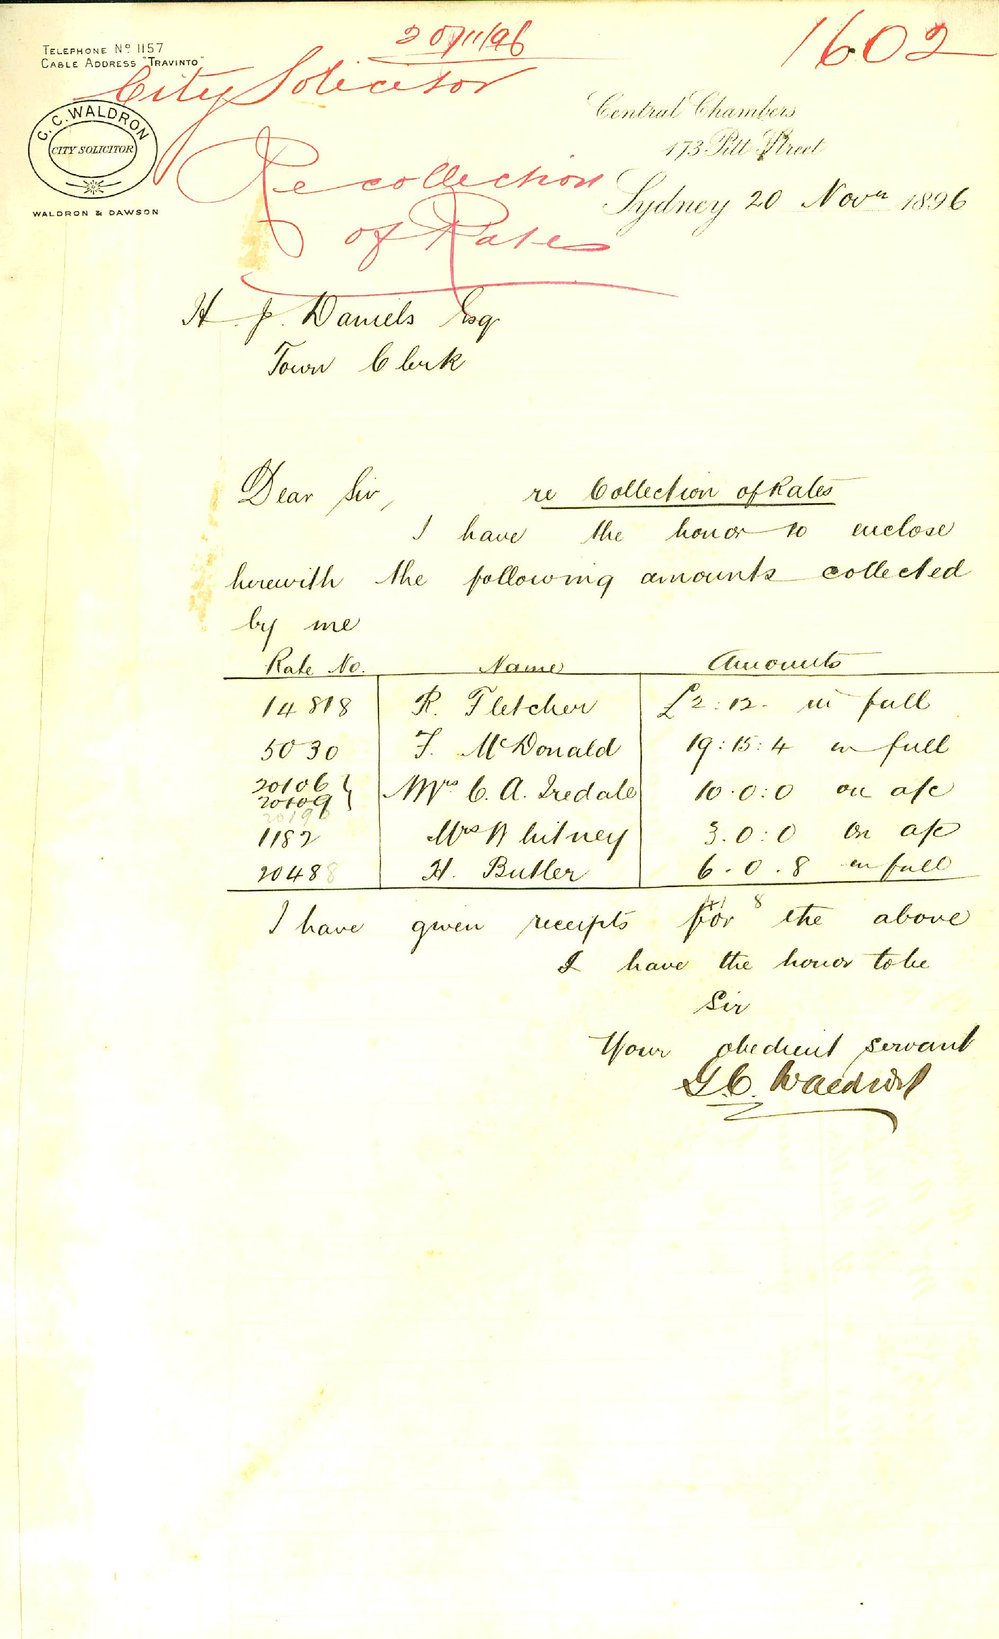 20/11/96
1602
TELEPHONE No 1157
CABLE ADDRESS "TRAVINTO"
City Solicitor
C. C. WALDRON
CITY SOLICITOR
WALDRON & DAWSON
Central Chambers
173 Pitt Street
Sydney 20 Novr 1896
Re collection
of Rates
H. J. Daniels Esq
Town Clerk
Dear Sir, re Collection of Rates
I have the honor to enclose
herewith the following amounts collected
by me
Rate No. Name Amounts
14818 R. Fletcher £2:12. in full
5030 F. McDonald 19:15:4 in full
20106 } Mrs C. A. Iredale 10.0:0 on a/c
20109 }
20196
1182 Mrs Whitney 3.0:0 on a/c
20488 H. Butler 6.0.8 in full
I have given receipts for the above
41 8
I have the honor to be
Sir
Your obedient servant
G. C. Waldron